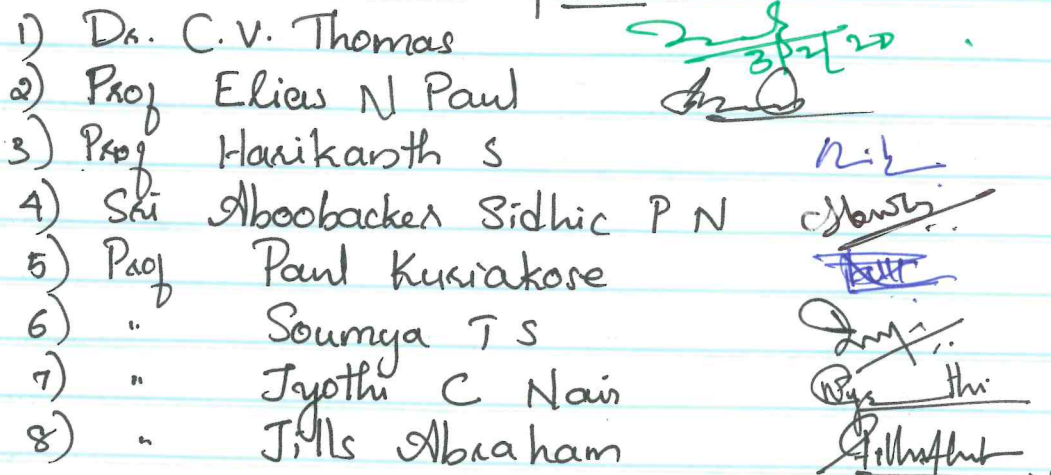 1) Dr. C.V. Thomas 3/2/20
2) Prof Elias N Paul
3) Prof Harikanth S
4) Shi Aboobacker Sidhic P N
5) Prof Paul Kuriakose
6) " Soumya T S
7) " Jyothi C Nair
8) " Jills Abraham